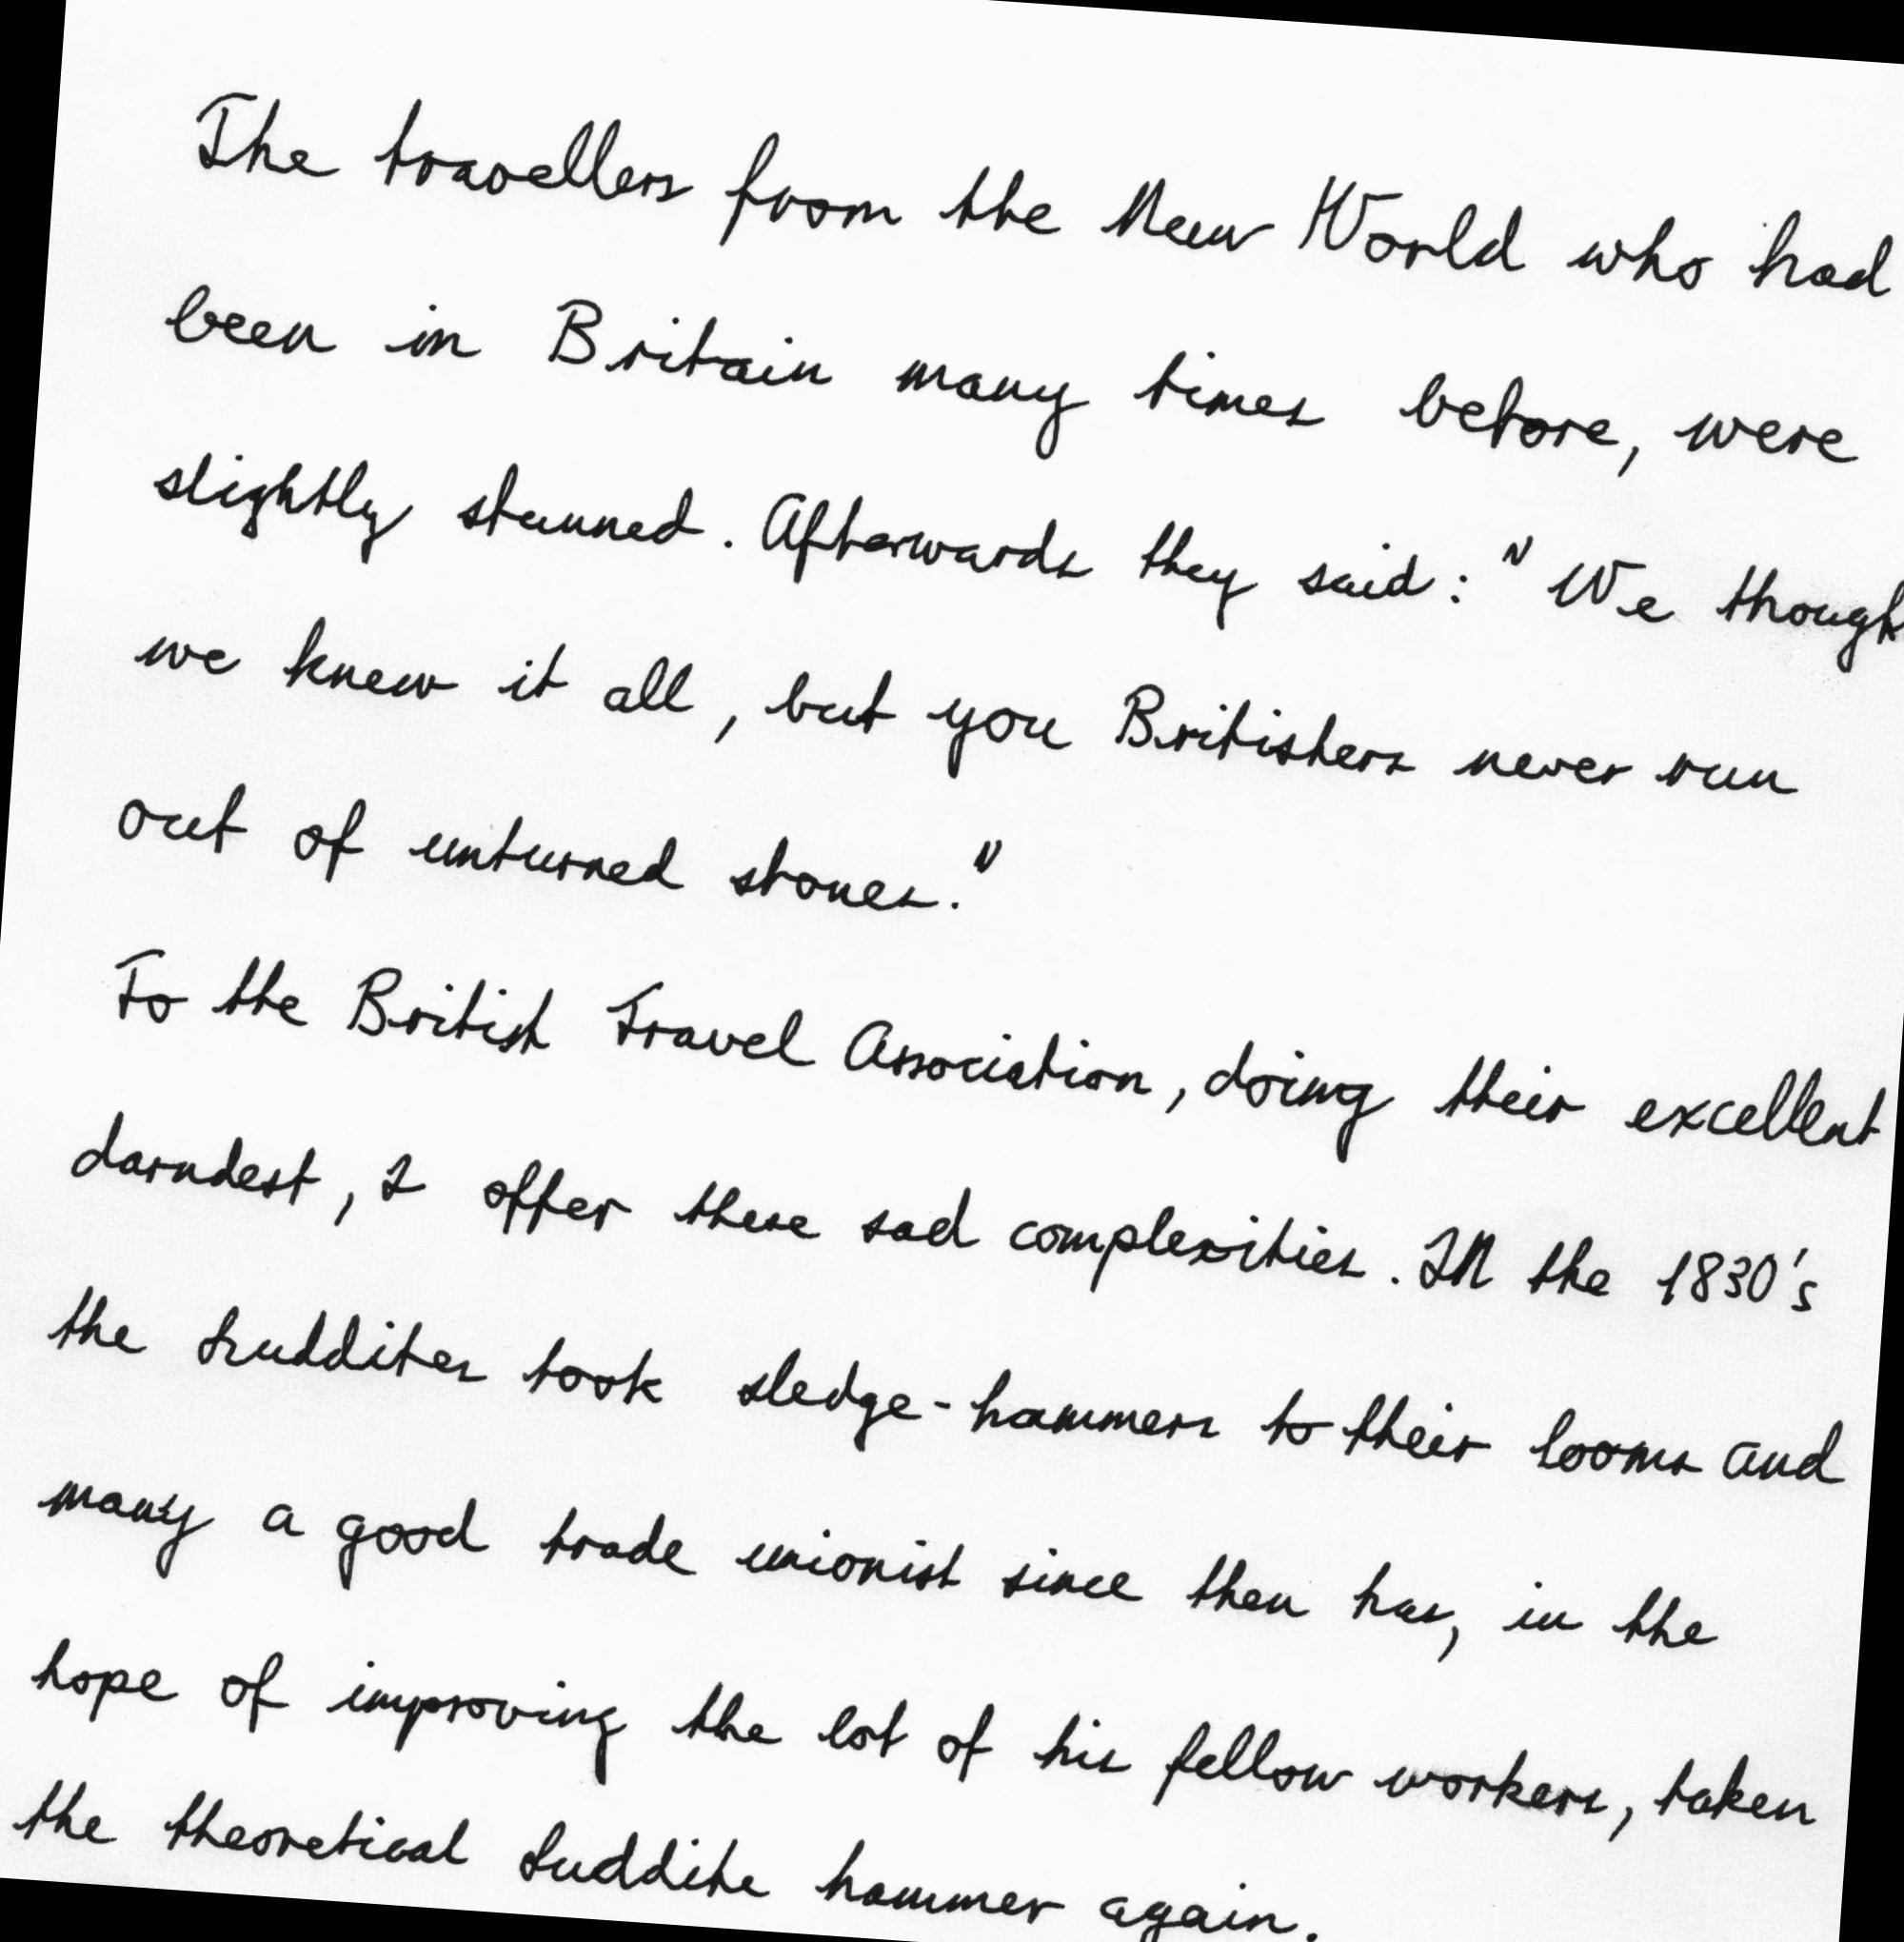 The travellers from the New World who had
been in Britain many times before, were
slightly stunned. Afterwards they said: "We though
we knew it all, but you Britishers never run
out of unturned stones."
To the British Travel Association, doing their excellent
darndest, I offer these sad complexities. IN the 1830's
the Luddites took sledge-hammers to their looms and
many a good trade unionist since then has, in the
hope of improving the lot of his fellow workers, taken
the theoretical Luddite hammer again.